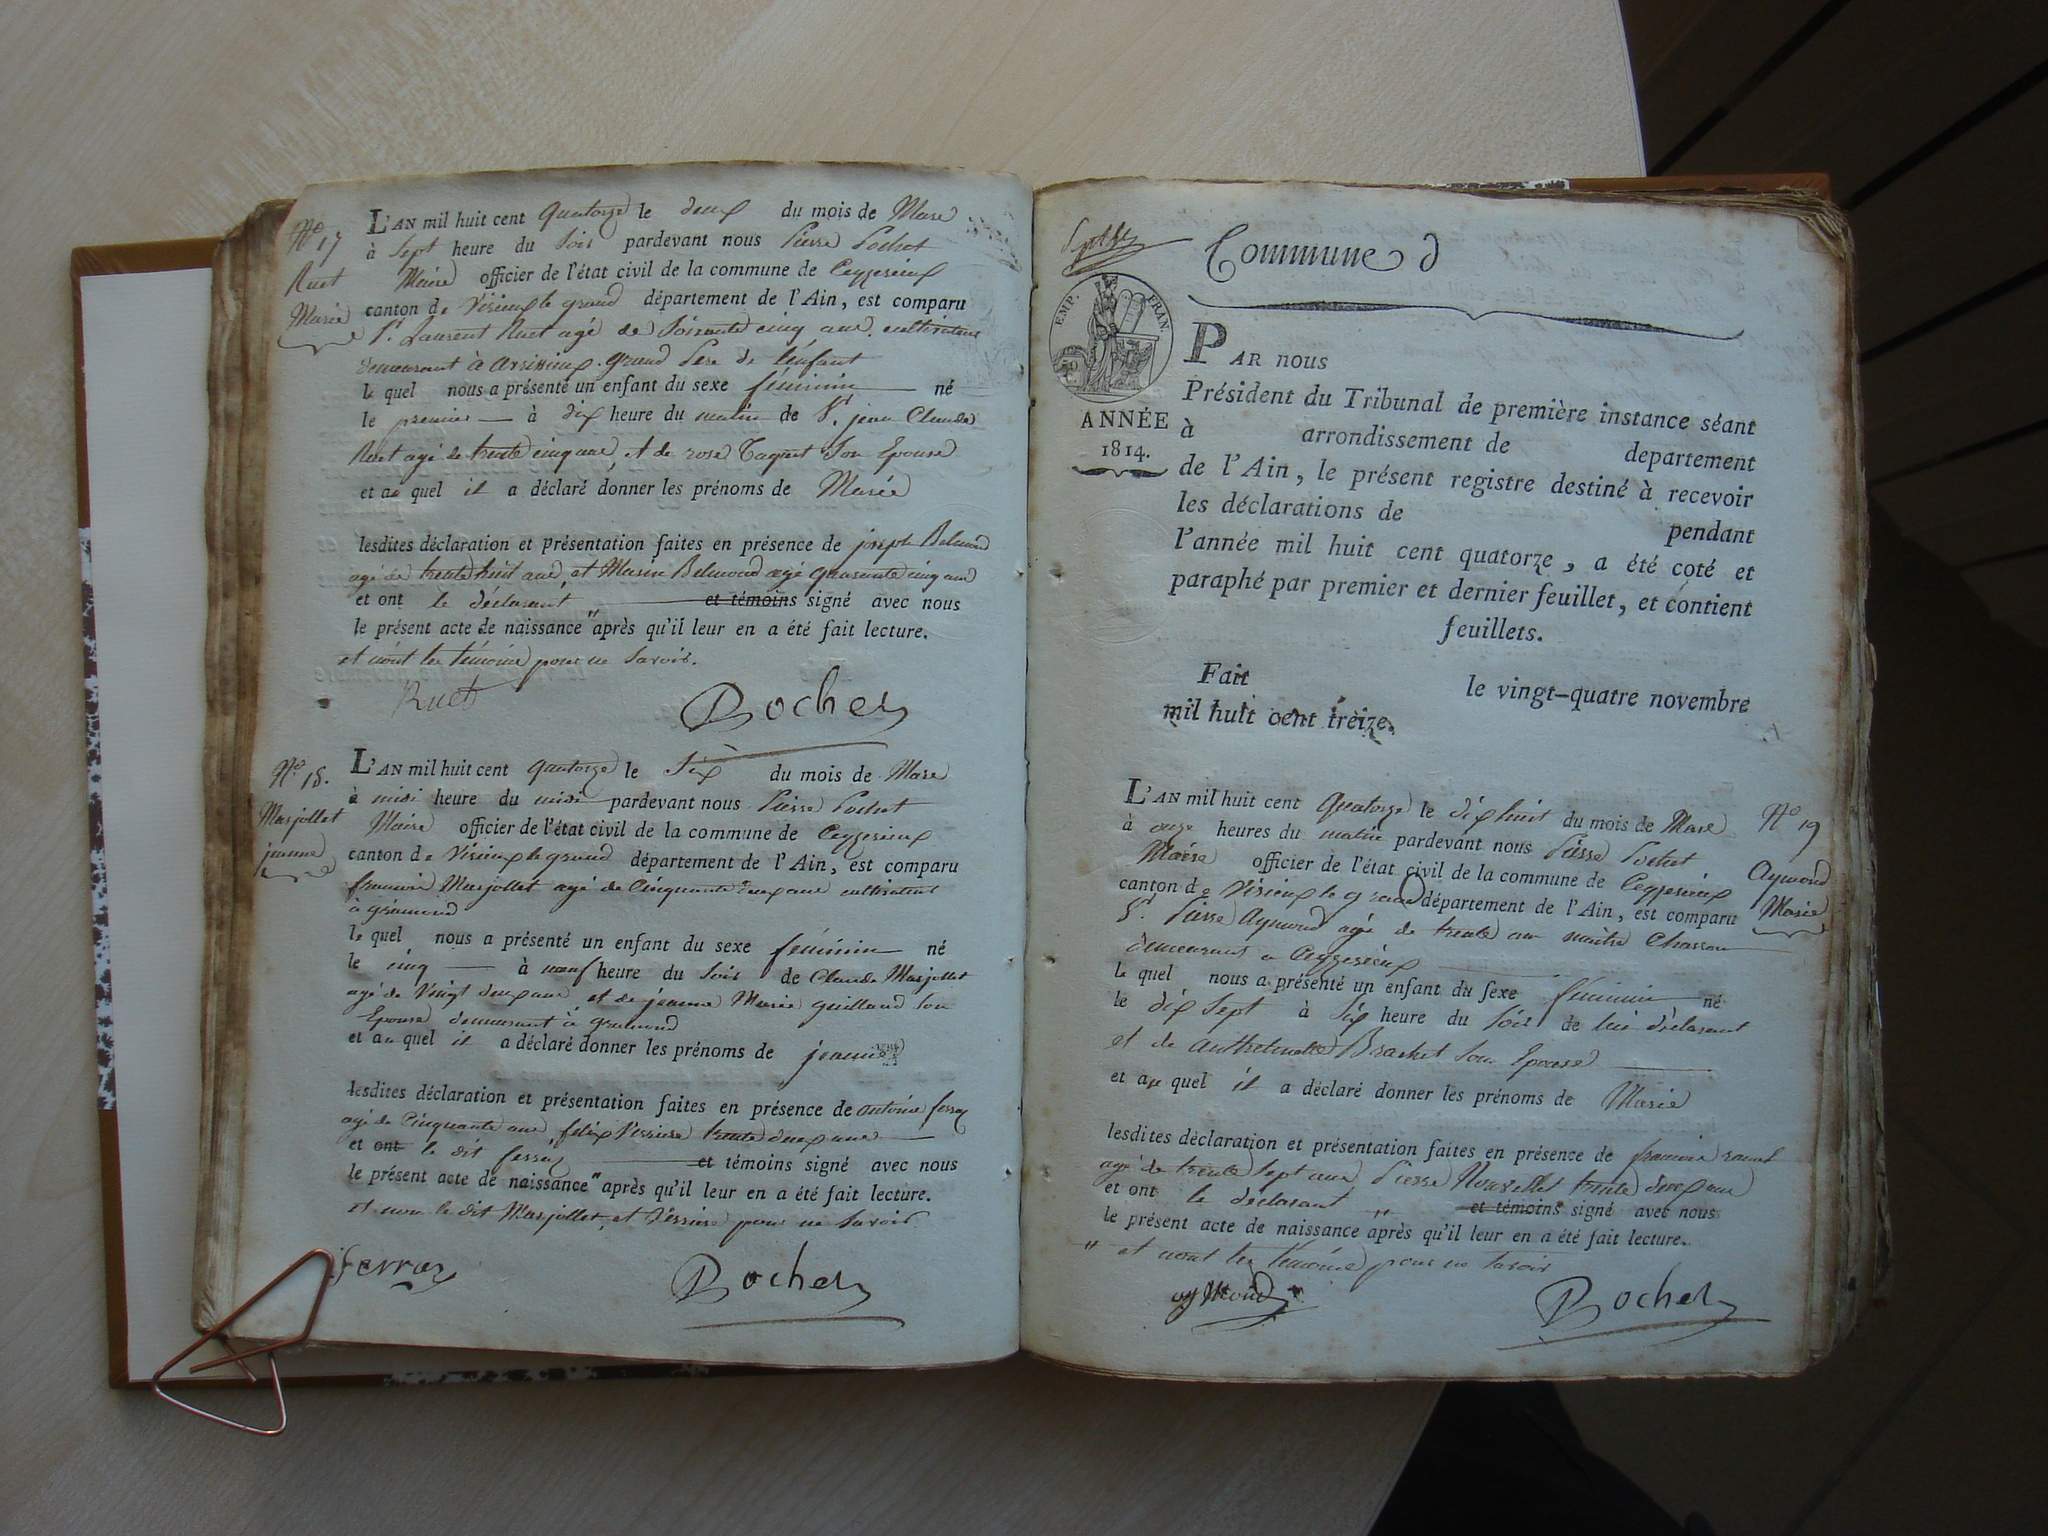 Nº 17
Ruet
Marie
L'AN mil huit cent quatorze le deux du mois de Mars
à Sept heure du Soir pardevant nous Pierre Pochet
Maire officier de l'état civil de la commune de Ceyzerieux
canton de Virieux le grand département de l'Ain, est comparu
Sr. Laurent Ruet agé de Soixante cinq ans. cultivateur
demeurant à avrissieux. grand Pere de l'enfant
le quel nous a présenté un enfant du sexe féminin né
le premier à dix heure du matin de Sr. jean Claude
Ruet agé de trente cinq ans, et de rose Taquet Son Epouse
et au quel il a déclaré donner les prénoms de Marie
lesdites déclaration et présentation faites en présence de joseph Belmond
agé de trente huit ans, et Marin Belmond agé quarente cinq ans
et ont le déclarant et témoins signé avec nous
le présent acte de naissance " après qu'il leur en a été fait lecture.
et n'ont les témoins pour ne Savoir.
Ruet
Bochet
Nº 18.
Marjollet
jeanne
L'AN mil huit cent quatorze le Six du mois de Mars
à midi heure du midi pardevant nous Pierre Pochet
Maire officier de l'état civil de la commune de Ceyzerieux
canton de Virieux le grand département de l'Ain, est comparu
francois Marjollet agé de Cinquante deux ans cultivateur
à gramond
le quel nous a présenté un enfant du sexe féminin né
le cinq à neuf heure du Soir de Claude Marjollet
agé de Vingt deux ans, et de jeanne Marie guilland Son
Epouse demeurant à gramond
et au quel il a déclaré donner les prénoms de jeanne
lesdites déclaration et présentation faites en présence de antoine ferroz
agé de Cinquante ans, felix Perrier trente deux ans
et ont le dit ferroz et témoins signé avec nous
le présent acte de naissance " après qu'il leur en a été fait lecture.
et non le dit Marjollet, et Perrier pour ne Savoir
ferroz
Bochet
Commune d
EMP. FRAN.
ANNÉE
1814.
PAR nous
Président du Tribunal de première instance séant
à arrondissement de departement
de l'Ain, le présent registre destiné à recevoir
les déclarations de pendant
l'année mil huit cent quatorze, a été coté et
paraphé par premier et dernier feuillet, et contient
feuillets.
Fait le vingt-quatre novembre
mil huit cent treize.
L'AN mil huit cent quatorze le dix huit du mois de Mars
à onze heures du matin pardevant nous Pierre Pochet
Maire officier de l'état civil de la commune de Ceyzerieux
canton de Virieux le grand département de l'Ain, est comparu
Sr. Pierre Aymond agé de trente ans maitre Charron
demeurant a Ceyzerieux
le quel nous a présenté un enfant du sexe féminin né
le dix Sept à Six heure du Soir de lui déclarant
et de Brachet Son Epouse
et au quel il a déclaré donner les prénoms de Marie
lesdites déclaration et présentation faites en présence de francois
agé de trente Sept ans, Pierre trente deux ans
et ont le déclarant et témoins signé avec nous
le présent acte de naissance " après qu'il leur en a été fait lecture.
" et n'ont les témoins pour ne Savoir
aymond
Bochet
Nº 19
Aymond
Marie